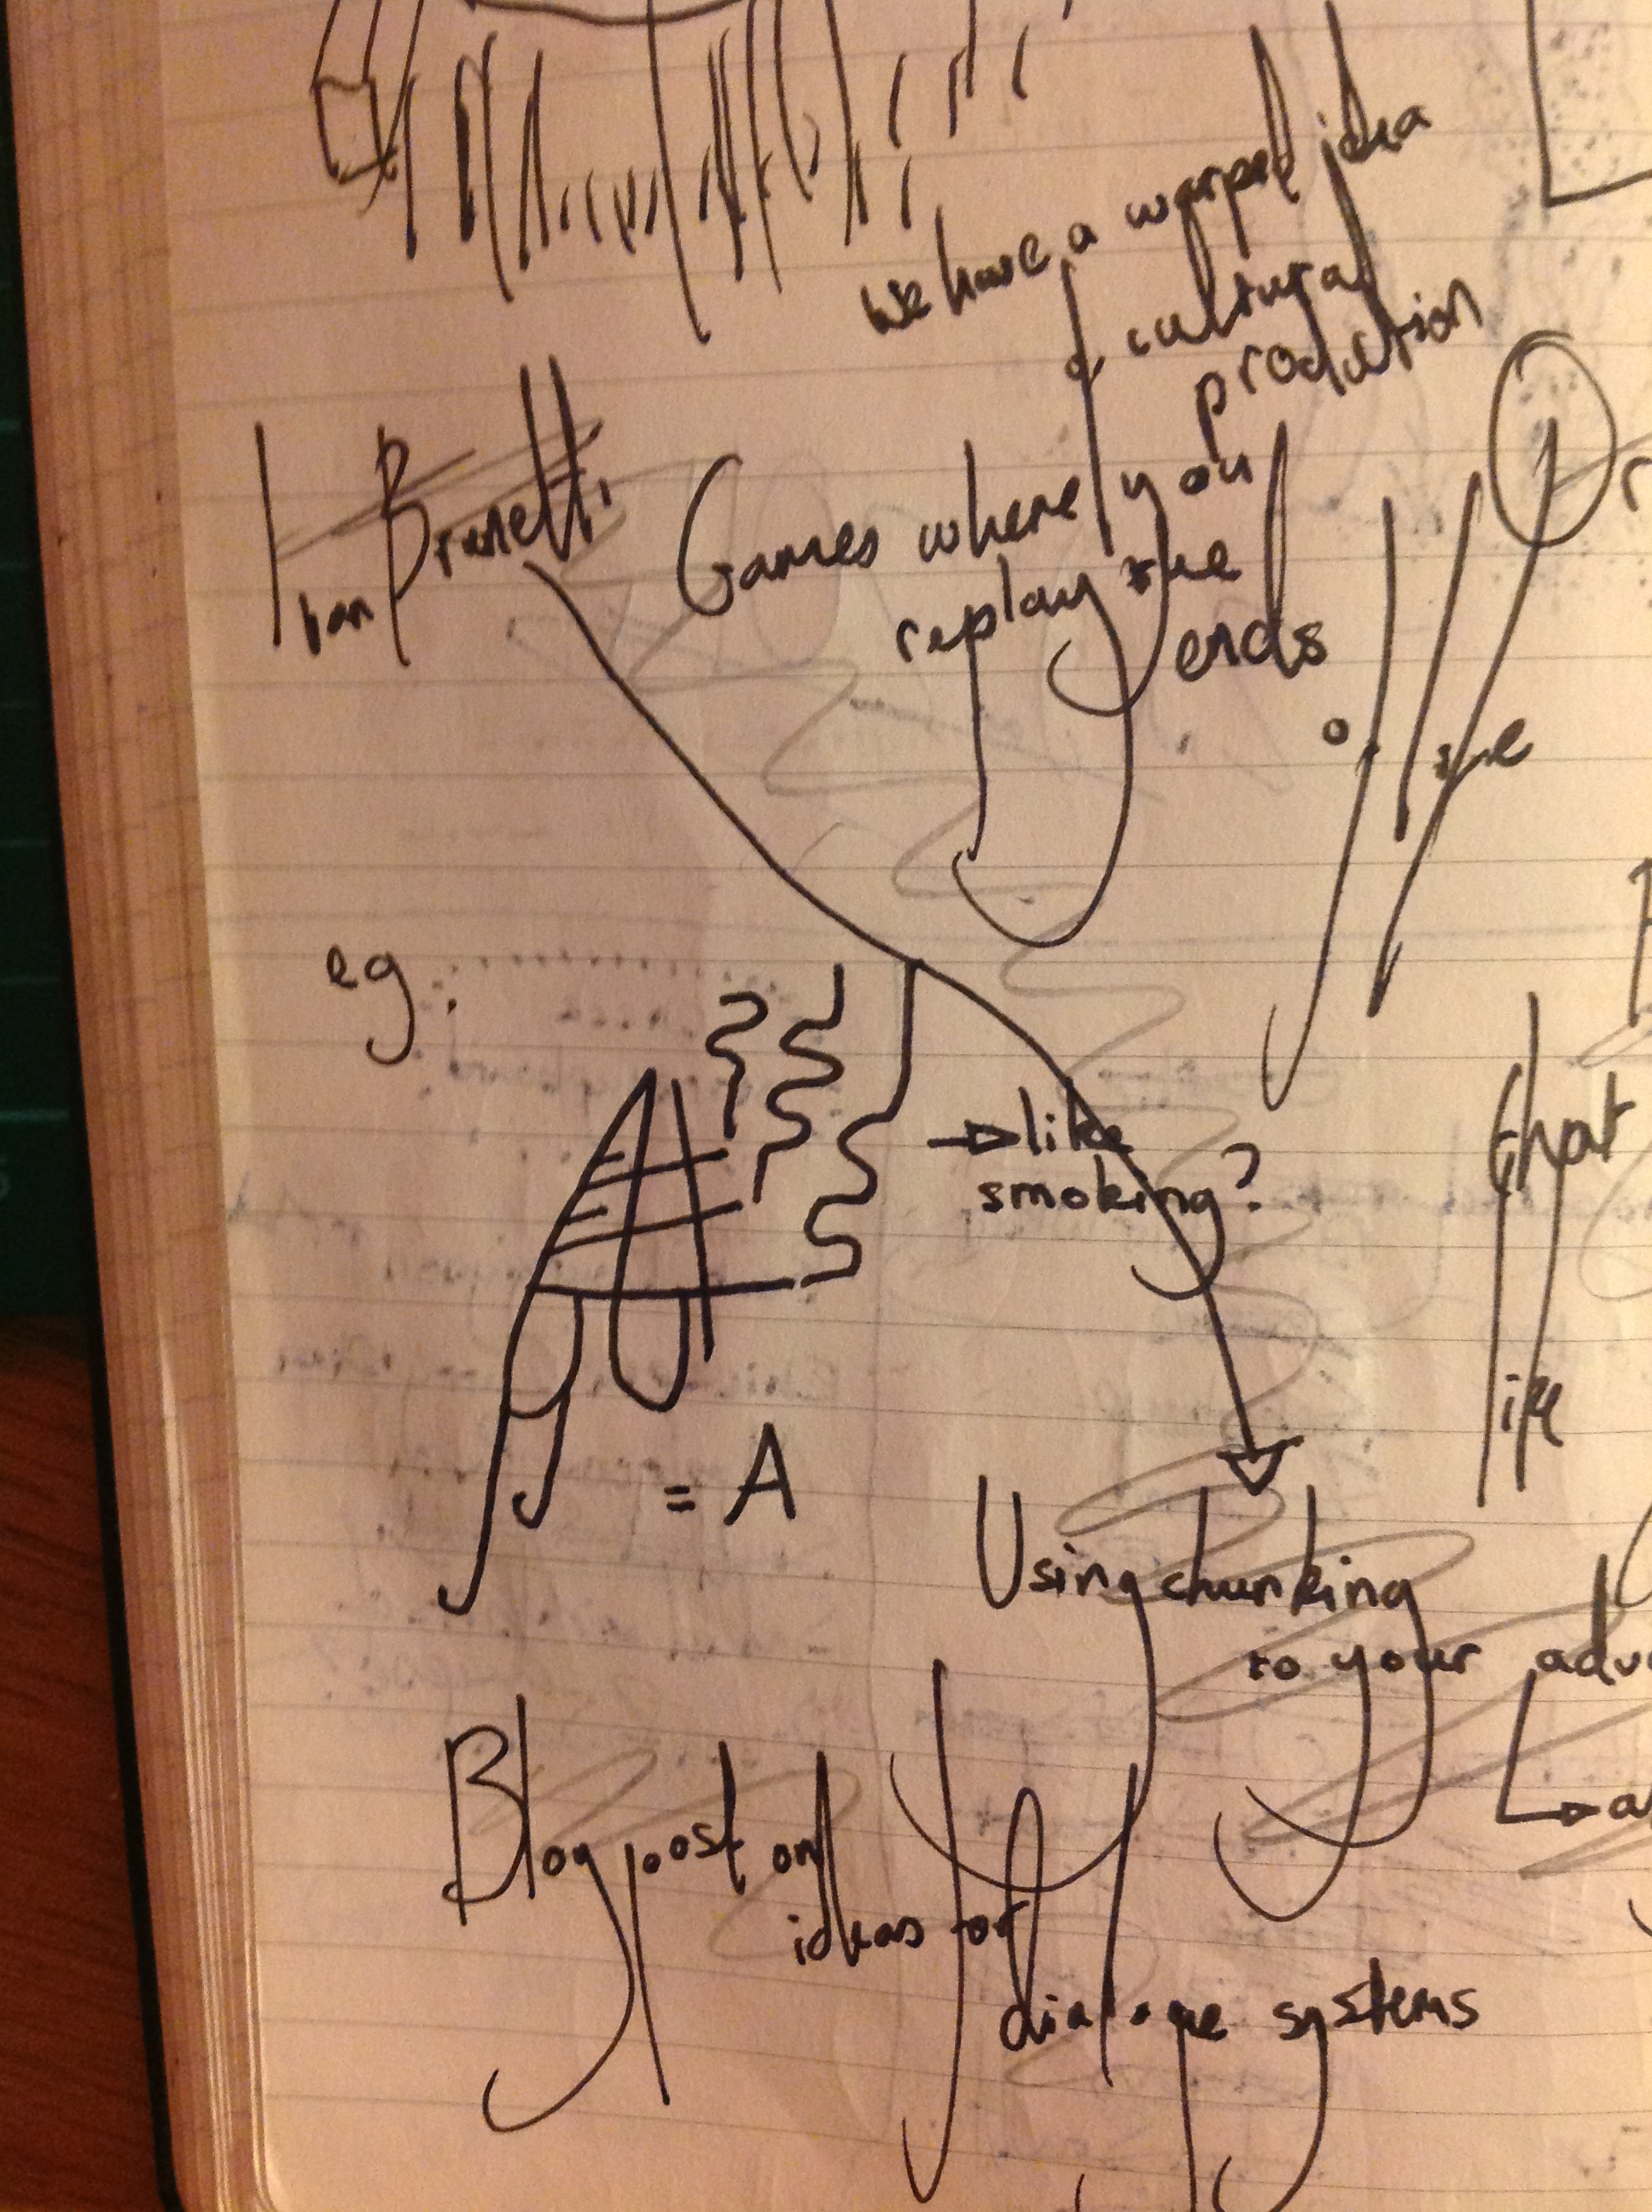 We have a warped idea
of cultural
production
Ivan Brunetti
Games where you
replay the
ends
of the
eg.
→ like
smoking?
that
life
= A
Using chunking
to your
Blog post on
ideas for
dialogue systems